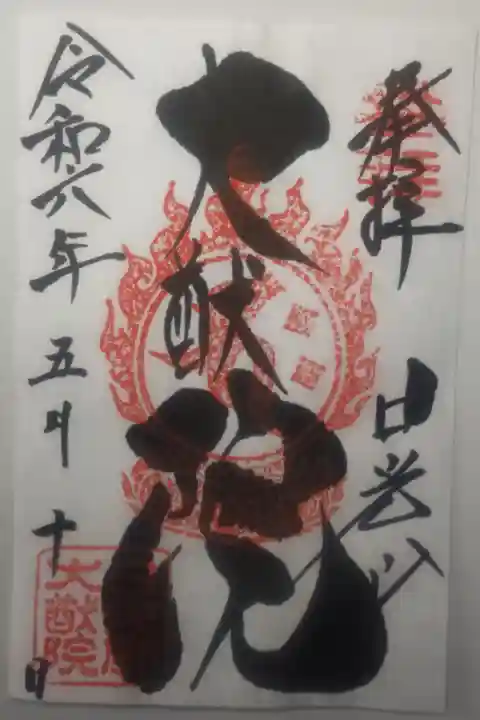 奉拝
日光山
大猷院
令和六年五月十日
大猷院